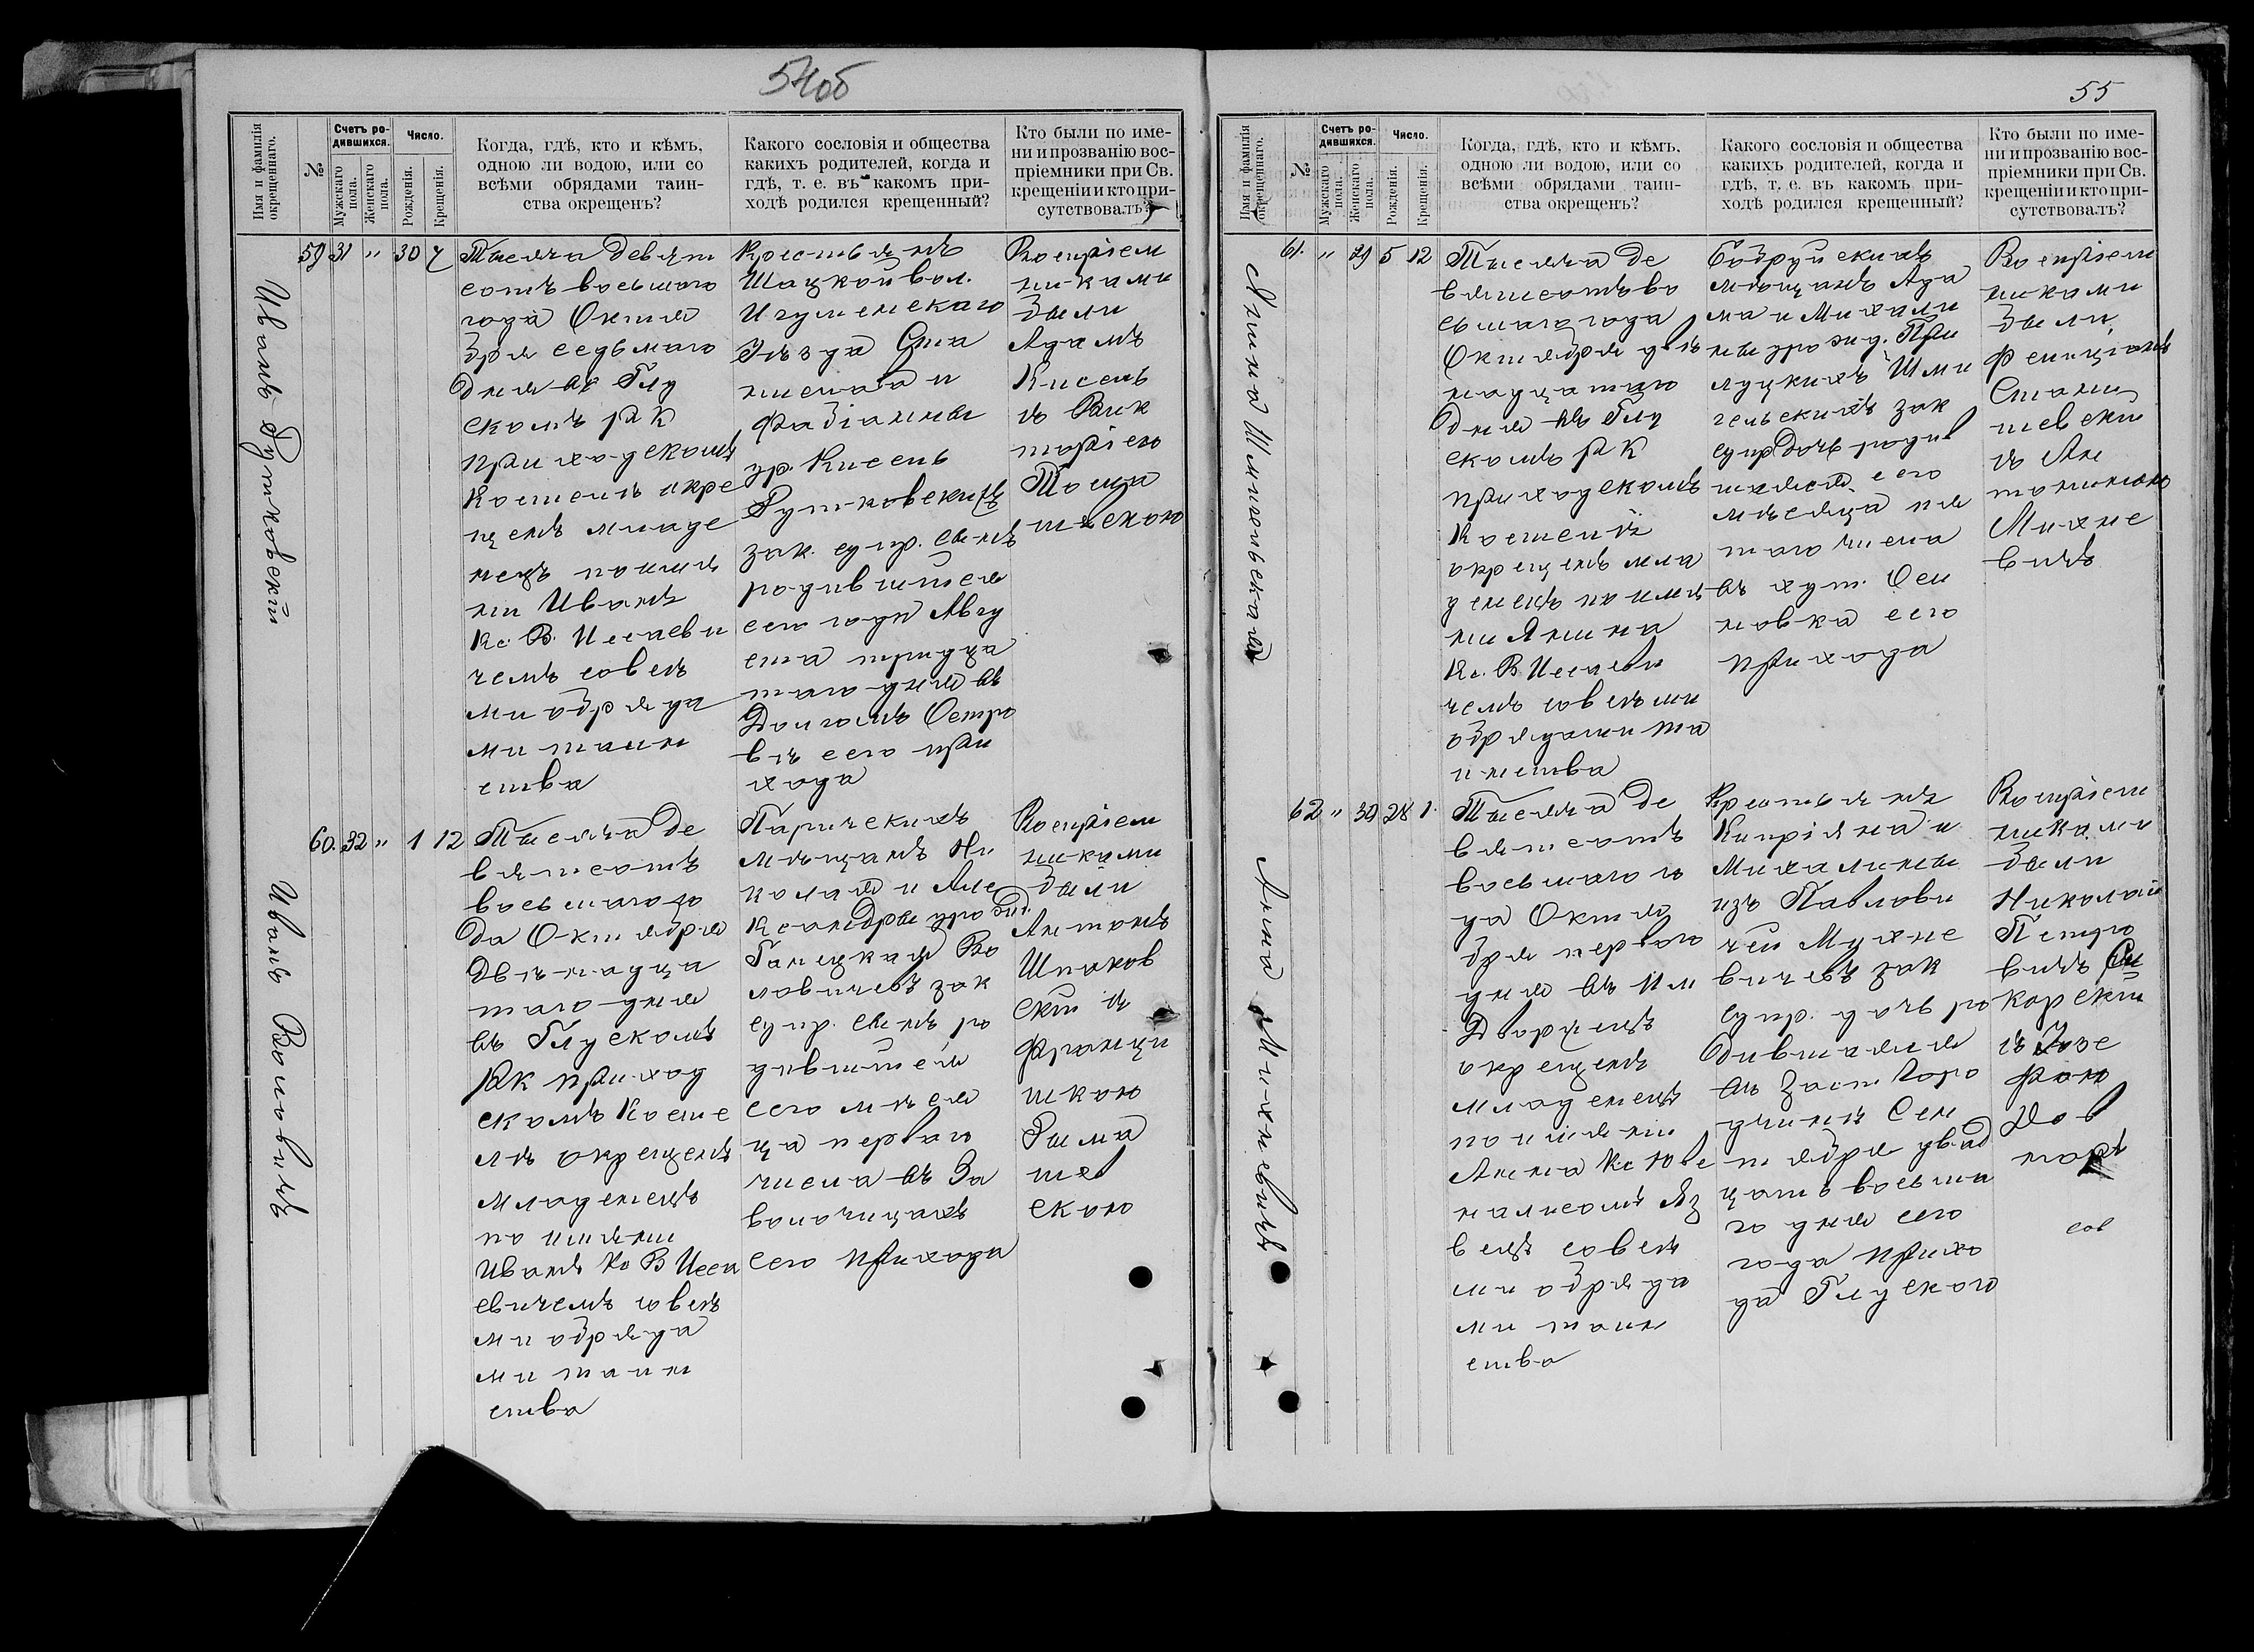 54об
Имя и фамилія
окрещеннаго.
№
Счетъ ро-
дившихся.
Мужскаго
пола.
Женскаго
пола.
Число.
Рожденія.
Крещенія.
Когда, гдѣ, кто и кѣмъ,
одною ли водою, или со
всѣми обрядами таин-
ства окрещенъ?
Какого сословія и общества
какихъ родителей, когда и
гдѣ, т. е. въ какомъ при-
ходѣ родился крещенный?
Кто были по име-
ни и прозванію вос-
пріемники при Св.
крещеніи и кто при-
сутствовалъ?
Иванъ Рутковскій
59 31 " 30 7
Тысяча девят
сотъ восьмого
года Октя
бря седьмаго
дня въ Глу
скомъ РК
приходскомъ
Костелѣ окре
щенъ младе
нецъ по имя
ни Иванъ
Кс. В. Иссаеви
чемъ со всѣ
ми обряда
ми таин
ства
Крестьянъ
Шацкой вол.
Игуменскаго
уѣзда Ста
нислава и
Фабіанны
ур. Кисель
Рутковскихъ
зак. супр. сынъ
родившійся
сего года Авгу
ста тридца
таго дня въ
Долгомъ Остро
вѣ сего при
хода
Воспріем
никами
были
Адамъ
Кисель
съ Вик
торіею
60. 32 " 1 12
Иванъ Воловичъ
Тысяча де
вятьсотъ
восьмаго го
да Октября
двѣнадца
таго дня
въ Глускомъ
РК приход
скомъ Косте
лѣ окрещенъ
младенецъ
по имяни
Иванъ Кс В Исса
евичемъ со всѣ
ми обряда
ми таин
ства
Паричскихъ
мѣщанъ Ни
колая и Але
ксандры урожд.
Воспріем
никами
были
Антонъ
Шпаков
скій съ
Франци
шкою
Рыма
шев
скою
ловичевъ зак
супр. сынъ ро
дившійся
сего мѣся
ца перваго
числа въ За
волочицахъ
сего прихода
55
Имя и фамилія
окрещеннаго.
№
Счетъ ро-
дившихся.
Мужскаго
пола.
Женскаго
пола.
Число.
Рожденія.
Крещенія.
Когда, гдѣ, кто и кѣмъ,
одною ли водою, или со
всѣми обрядами таин-
ства окрещенъ?
Какого сословія и общества
какихъ родителей, когда и
гдѣ, т. е. въ какомъ при-
ходѣ родился крещенный?
Кто были по име-
ни и прозванію вос-
пріемники при Св.
крещеніи и кто при-
сутствовалъ?
61. " 29 5 12
Янина Шмигельская
Тысяча де
вятьсотъ во
сьмаго года
Октября двѣ
надцатаго
дня въ Глу
скомъ РК
приходскомъ
Костелѣ
окрещенъ мла
денецъ по имя
ни Янина
Кс. В Иссаеви
чемъ со всѣми
обрядами та
инства
Бобруйскихъ
мѣщанъ Ада
ма и Михали
ны урожд. При
луцкихъ Шми
гельскихъ зак
супр дочь родив
шаяся сего
мѣсяца пя
таго числа
въ хут. Оси
новка сего
прихода
Воспріем
никами
были
Фелиціанъ
Стани
шевскій
съ Ан
тониною
Михне
вичъ
62 " 30 28 1.
Анна Михневичъ
Тысяча де
вятьсотъ
восьмаго го
да Октя
бря перваго
дня въ Им
Дворецъ
окрещенъ
младенецъ
по имяни
Анна Кс Юве
налисомъ Яз
вецъ со всѣ
ми обряда
ми таин
ства
Крестьянъ
Кипріяна и
Михалины
изъ Павлови
чей Михне
вичевъ зак
супр. дочь ро
дившаяся
въ Заст Горо
дчинѣ Сен
тября двад
цать восьма
го дня сего
года прихо
да Глускаго
Воспріем
никами
были
Николай
Петро
вичъ
съ Юзе
фою
Дов
наръ